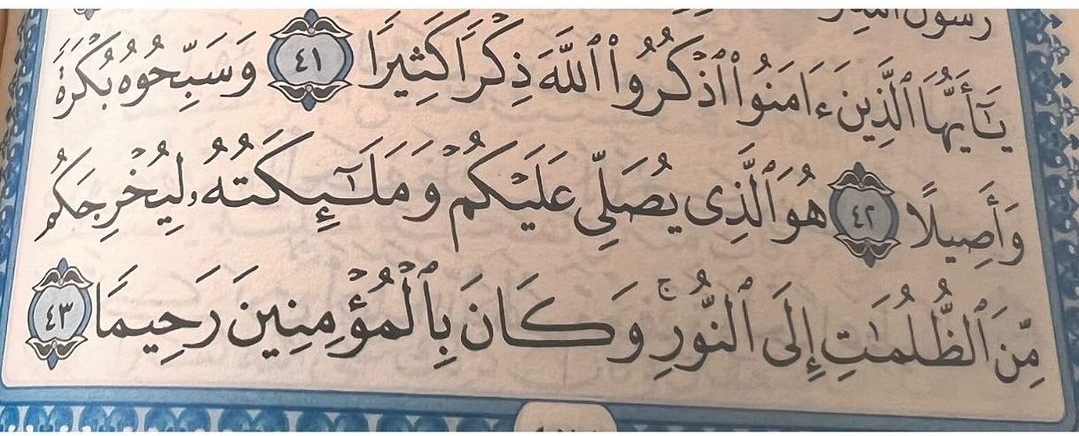 يَٰٓأَيُّهَا ٱلَّذِينَ ءَامَنُوا۟ ٱذْكُرُوا۟ ٱللَّهَ ذِكْرًا كَثِيرًا ٤١ وَسَبِّحُوهُ بُكْرَةً
وَأَصِيلًا ٤٢ هُوَ ٱلَّذِى يُصَلِّى عَلَيْكُمْ وَمَلَٰٓئِكَتُهُۥ لِيُخْرِجَكُم
مِّنَ ٱلظُّلُمَٰتِ إِلَى ٱلنُّورِ ۚ وَكَانَ بِٱلْمُؤْمِنِينَ رَحِيمًا ٤٣